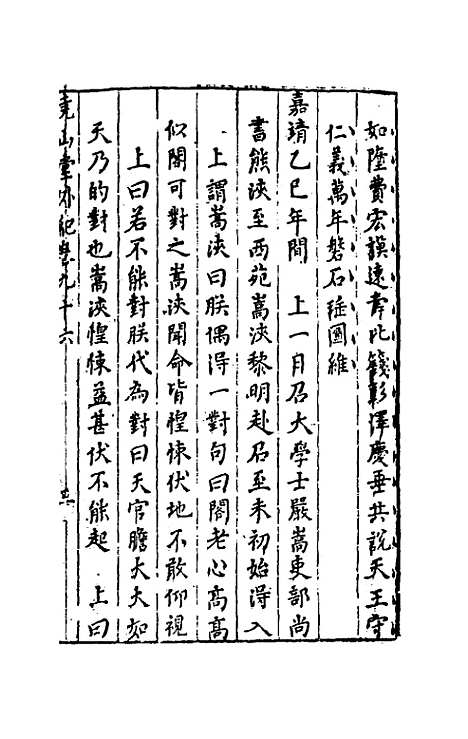 如陞費宏謨遠摩比箋彰澤慶垂共說天王守
仁義萬年磐石鞏固維
嘉靖乙巳年間 上一日召大學士嚴嵩吏部尚
書熊浹至西苑嵩浹黎明赴召至未初始得入
上謂嵩浹曰朕偶得一對句曰閣老心高高
似閣可對之嵩浹聞命皆惶悚伏地不敢仰視
上曰若不能對朕代為對曰天官膽大大如
天乃的對也嵩浹惶悚益甚伏不能起 上曰
堯山堂外紀卷九十六